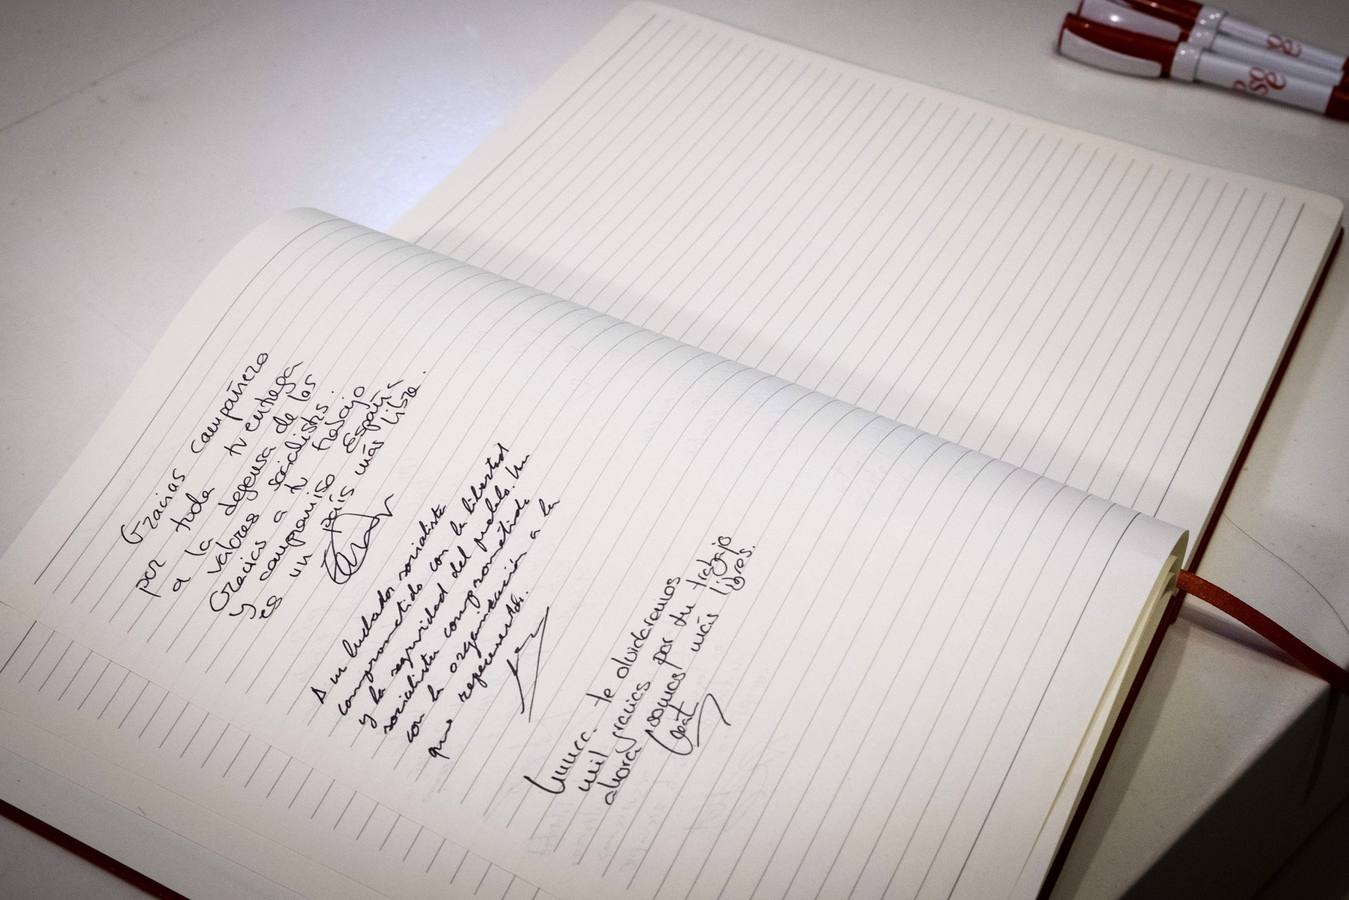 Gracias compañero
por toda tu entrega
a la defensa de los
valores socialistas.
Gracias a tu trabajo
y compromiso España
es un país más libre.
A un luchador socialista
comprometido con la libertad
y la seguridad del modelo. Un
socialista comprometido
con la organización a la
que representó.
Nunca te olvidaremos
mil gracias por tu trabajo
ahora somos más libres.
PSOE